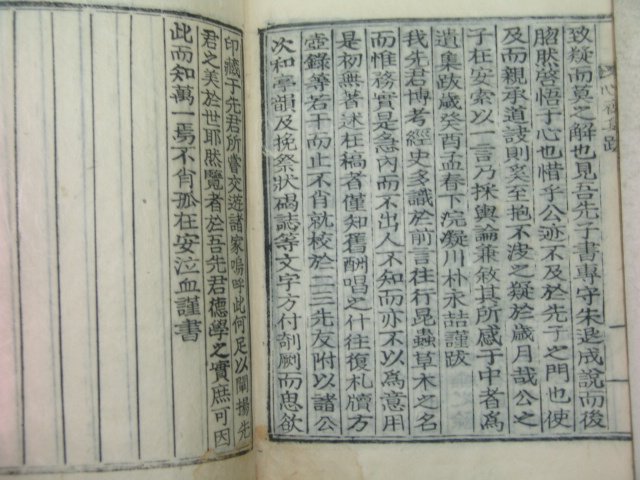 致疑而莫之解也見吾先子書專守朱退成說而後
脗肰啓悟于心也惜乎公迹不及於先子之門也使
及而親承道諉則奚至抱不決之疑於歲月哉公之
子在安索以一言乃採輿論兼敘其所感于中者為
遺集跋歲癸酉孟春下浣凝川朴永喆謹跋
我先君博考經史多識於前言往行昆蟲草木之名
而惟務實是急內而不出人不知而亦不以為意用
是初無著述在稿者僅知舊酬唱之什往復札牘方
壺錄等若干而止不肖就校於二三先友附以諸公
次和亭韻及挽祭狀碣誌等文字方付剞劂而思欲
印藏于先君所嘗交遊諸家嗚呼此何足以闡揚先
君之美於世耶然覽者於吾先君德學之實庶可因
此而知萬一焉不肖孤在安泣血謹書